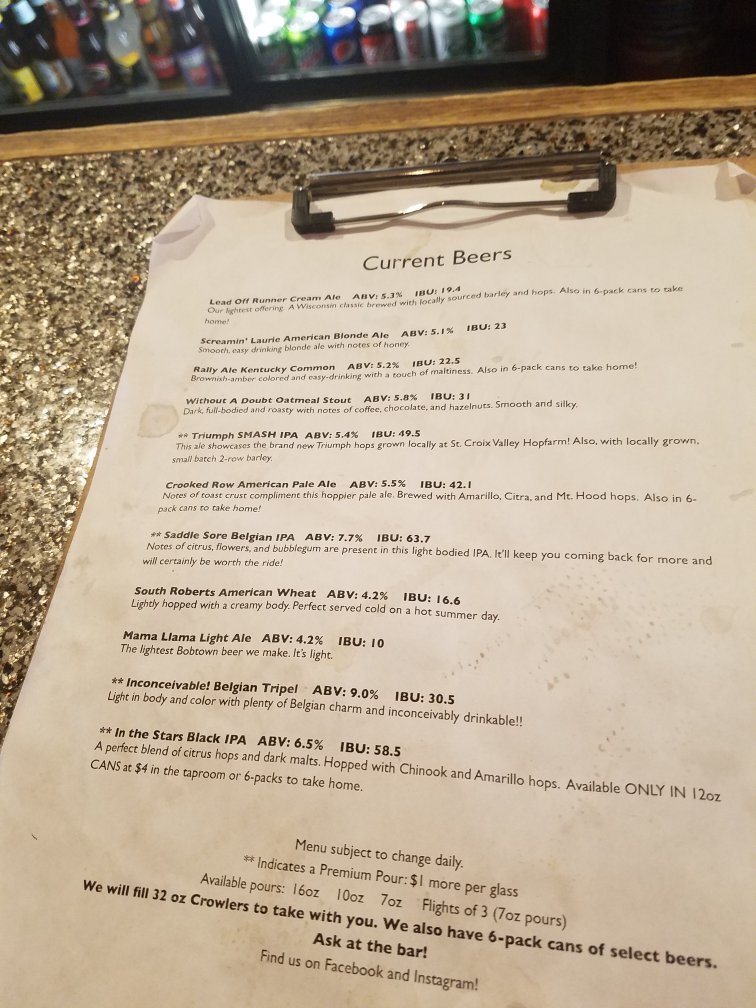 Current Beers
Lead Off Runner Cream Ale ABV: 5.3% IBU: 19.4
Our lightest offering. A Wisconsin classic brewed with locally sourced barley and hops. Also in 6-pack cans to take
home!
Screamin' Laurie American Blonde Ale ABV: 5.1% IBU: 23
Smooth, easy drinking blonde ale with notes of honey.
Rally Ale Kentucky Common ABV: 5.2% IBU: 22.5
Brownish-amber colored and easy-drinking with a touch of maltiness. Also in 6-pack cans to take home!
Without A Doubt Oatmeal Stout ABV: 5.8% IBU: 31
Dark, full-bodied and roasty with notes of coffee, chocolate, and hazelnuts. Smooth and silky.
** Triumph SMASH IPA ABV: 5.4% IBU: 49.5
This ale showcases the brand new Triumph hops grown locally at St. Croix Valley Hopfarm! Also, with locally grown,
small batch 2-row barley.
Crooked Row American Pale Ale ABV: 5.5% IBU: 42.1
Notes of toast crust compliment this hoppier pale ale. Brewed with Amarillo, Citra, and Mt. Hood hops. Also in 6-
pack cans to take home!
** Saddle Sore Belgian IPA ABV: 7.7% IBU: 63.7
Notes of citrus, flowers, and bubblegum are present in this light bodied IPA. It'll keep you coming back for more and
will certainly be worth the ride!
South Roberts American Wheat ABV: 4.2% IBU: 16.6
Lightly hopped with a creamy body. Perfect served cold on a hot summer day.
Mama Llama Light Ale ABV: 4.2% IBU: 10
The lightest Bobtown beer we make. It's light.
** Inconceivable! Belgian Tripel ABV: 9.0% IBU: 30.5
Light in body and color with plenty of Belgian charm and inconceivably drinkable!!
** In the Stars Black IPA ABV: 6.5% IBU: 58.5
A perfect blend of citrus hops and dark malts. Hopped with Chinook and Amarillo hops. Available ONLY IN 12oz
CANS at $4 in the taproom or 6-packs to take home.
Menu subject to change daily.
** Indicates a Premium Pour: $1 more per glass
Available pours: 16oz 10oz 7oz Flights of 3 (7oz pours)
We will fill 32 oz Crowlers to take with you. We also have 6-pack cans of select beers.
Ask at the bar!
Find us on Facebook and Instagram!